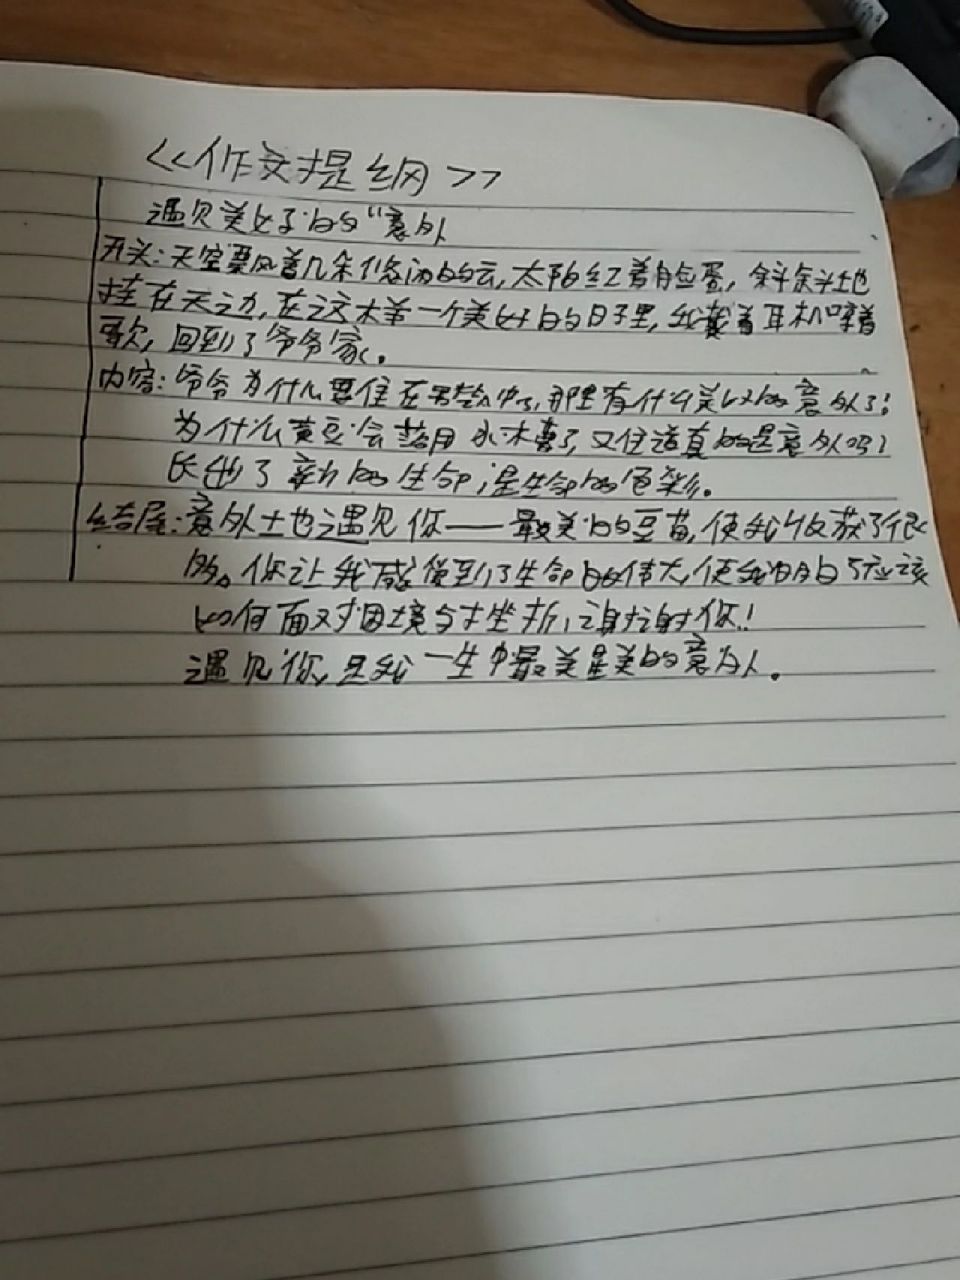 <<作文提纲>>
遇见美好的“意外
开头：天空飘着几朵悠闲的云，太阳红着脸蛋，斜斜地
挂在天边，在这样一个美好的日子里，我戴着耳机哼着
歌，回到了爷爷家。
内容：爷爷为什么要住在 ，那里有什么美好的意外了！
为什么黄豆会 用水 了，又 道真的是意外吗！
长出了新的生命，是生命的色彩。
结尾：意外地遇见你——最美的豆苗，使我收获了很
多。你让我感受到了生命的伟大，使我明白了应该
如何面对困境与挫折，谢谢你！
遇见你，是我一生中最美 美的意外。